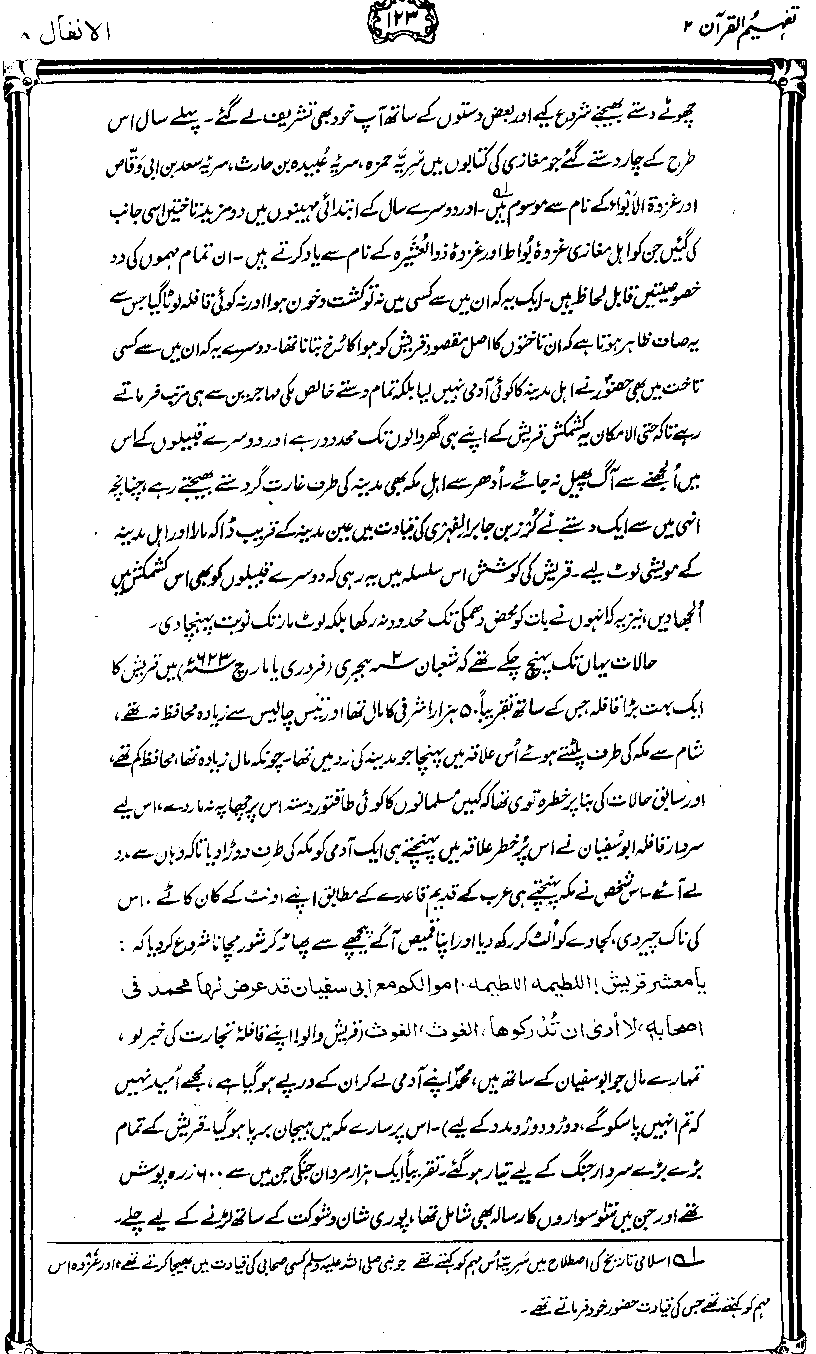 تفہیم القرآن ۲
۱۲۳
الانفال ۸
چھوٹے دستے بھیجنے شروع کیے اور بعض دستوں کے ساتھ آپ خود بھی تشریف لے گئے۔ پہلے سال اس
طرح کے چار دستے گئے جو مغازی کی کتابوں میں سَرِیّۂ حمزہ، سریّۂ عُبیدہ بن حارث، سریّۂ سعد بن ابی وقّاص
اور غزوۃ الاَبْواء کے نام سے موسوم ہیں۱ہ۔ اور دوسرے سال کے ابتدائی مہینوں میں دو مزید تاختیں اسی جانب
کی گئیں جن کو اہلِ مغازی غزوۂ بُواط اور غزوۂ ذوالعُشَیرہ کے نام سے یاد کرتے ہیں۔ ان تمام مہموں کی دو
خصوصیتیں قابلِ لحاظ ہیں۔ ایک یہ کہ ان میں سے کسی میں نہ تو کشت و خون ہوا اور نہ کوئی قافلہ لوٹا گیا جس سے
یہ صاف ظاہر ہوتا ہے کہ ان تاختوں کا اصل مقصود قریش کو ہوا کا رُخ بتانا تھا۔ دوسرے یہ کہ ان میں سے کسی
تاخت میں بھی حضورؐ نے اہلِ مدینہ کا کوئی آدمی نہیں لیا بلکہ تمام دستے خالص مکّی مہاجرین سے ہی مرتب فرماتے
رہے تاکہ حتی الامکان یہ کشمکش قریش کے اپنے ہی گھر والوں تک محدود رہے اور دوسرے قبیلوں کے اس
میں اُلجھنے سے آگ پھیل نہ جائے۔ اُدھر سے اہلِ مکہ بھی مدینہ کی طرف غارت گر دستے بھیجتے رہے، چنانچہ
انہی میں سے ایک دستے نے کُرز بن جابر الفِہری کی قیادت میں عین مدینہ کے قریب ڈاکہ مارا اور اہلِ مدینہ
کے مویشی لوٹ لیے۔ قریش کی کوشش اس سلسلہ میں یہ رہی کہ دوسرے قبیلوں کو بھی اس کشمکش میں
اُلجھا دیں، نیز یہ کہ انہوں نے بات کو محض دھمکی تک محدود نہ رکھا بلکہ لوٹ مار تک نوبت پہنچا دی۔
حالات یہاں تک پہنچ چکے تھے کہ شعبان ۲ ہجری (فروری یا مارچ ۶۲۳ء) میں قریش کا
ایک بہت بڑا قافلہ جس کے ساتھ تقریباً ۵۰ ہزار اشرفی کا مال تھا اور تیس چالیس سے زیادہ محافظ نہ تھے،
شام سے مکہ کی طرف پلٹتے ہوئے اُس علاقہ میں پہنچا جو مدینہ کی زد میں تھا۔ چونکہ مال زیادہ تھا، محافظ کم تھے،
اور سابق حالات کی بنا پر خطرہ قوی تھا کہ کہیں مسلمانوں کا کوئی طاقتور دستہ اس پر چھاپہ نہ مار دے، اس لیے
سردارِ قافلہ ابوسُفیان نے اس پُرخطر علاقہ میں پہنچتے ہی ایک آدمی کو مکہ کی طرف دوڑا دیا تاکہ وہاں سے مدد
لے آئے۔ اس شخص نے مکہ پہنچتے ہی عرب کے قدیم قاعدے کے مطابق اپنے اونٹ کے کان کاٹے، اس
کی ناک چیر دی، کجاوے کو اُلٹ کر رکھ دیا اور اپنا قمیص آگے پیچھے سے پھاڑ کر شور مچانا شروع کر دیا کہ :
یا معشر قریش! اللطیمہ اللطیمہ، اموالکم مع ابی سفیان قد عرض لہا محمد فی
اصحابہٖ، لا اُرٰی ان تُدْرکوھا، الغوث، الغوث (قریش والو! اپنے قافلۂ تجارت کی خبر لو،
تمہارے مال جو ابوسفیان کے ساتھ ہیں، محمدؐ اپنے آدمی لے کر ان کے درپے ہو گیا ہے، مجھے اُمید نہیں
کہ تم انہیں پا سکو گے، دوڑو دوڑو مدد کے لیے)۔ اس پر سارے مکہ میں ہیجان برپا ہو گیا۔ قریش کے تمام
بڑے بڑے سردار جنگ کے لیے تیار ہو گئے۔ تقریباً ایک ہزار مردانِ جنگی جن میں سے ۶۰۰ زرہ پوش
تھے اور جن میں سَو سواروں کا رسالہ بھی شامل تھا، پوری شان و شوکت کے ساتھ لڑنے کے لیے چلے۔
۱ہ اسلامی تاریخ کی اصطلاح میں سَریّہ اُس مہم کو کہتے تھے جو نبی صلی اللہ علیہ وسلم کسی صحابی کی قیادت میں بھیجا کرتے تھے، اور غزوہ اس
مہم کو کہتے تھے جس کی قیادت حضور خود فرماتے تھے۔